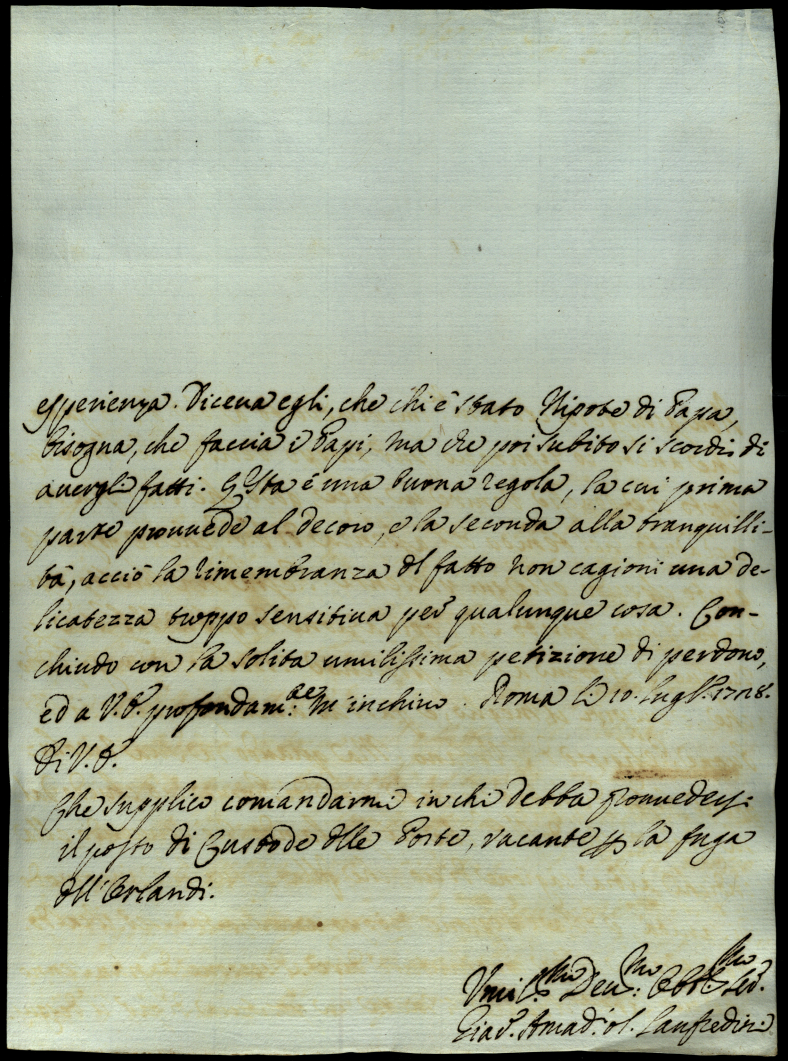 esperienza. Diceva egli, che chi è stato Nipote di Papa,
bisogna, che faccia i Papi, ma che poi subito si scordi di
avergli fatti. Q.sta è una buona regola, la cui prima
parte provvede al decoro, e la seconda alla tranquilli-
tà, acciò la rimembranza del fatto non cagioni una de-
licatezza troppo sensitiva per qualunque cosa. Con-
chiudo con la solita umilissima petizione di perdono,
ed a V.E. profondam.te m'inchino. Roma li 10. Lugl.o
Di V.E.
Che supplico comandarmi in chi debba provvedersi
il posto di Custode delle Porte, vacante p la fuga
dell'Orlandi.
Umil.mo Dev.mo Obbl.mo Ser.
Giac. Amad. Lanfredini